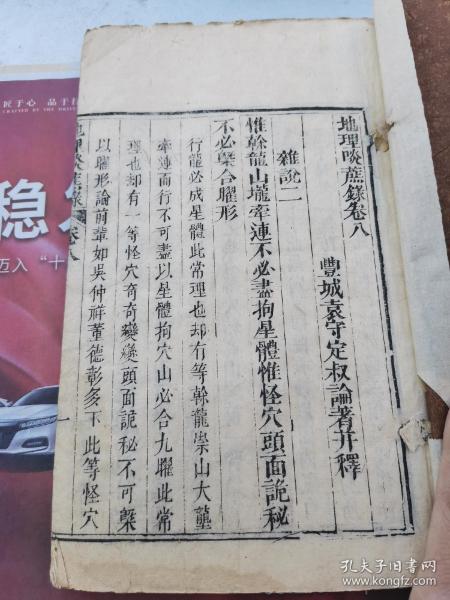 地理啖蔗錄卷八
豐城袁守定叔論著并釋
雜說二
惟幹龍山壠牽連不必盡拘星體惟怪穴頭面詭秘
不必槩合曜形
行龍必成星體此常理也却有等幹龍崇山大壟
牽連而行不可盡以星體拘穴山必合九曜此常
理也却有一等怪穴奇奇變變頭面詭秘不可槩
以曜形論前輩如吳仲祥董德彰多下此等怪穴
地理啖蔗錄 卷八
一
匠于心 品于行
稳
迈入“十
孔夫子旧书网
www.kongfz.com